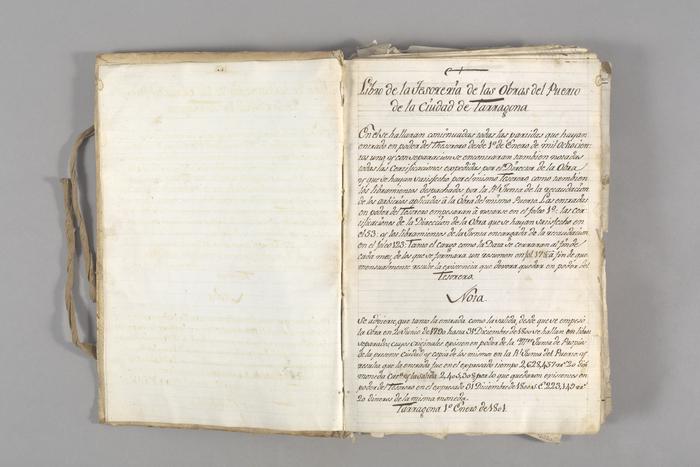 Libro de la Tesoreria de las Obras del Puerto
de la Ciudad de Tarragona.
En el se hallaran continuadas todas las partidas que hayan
entrado en poder del Thesorero desde 1º de Enero de mil Ochocien-
tos uno y con separacion se encontraran tambien notadas
todas las Certificaciones expedidas por el Director de la Obra
y que se hayan satisfecho por el mismo Tesorero, como tambien
los libramientos despachados por la Rl Junta de la recaudacion
de los arbitrios aplicados à la Obra del mismo Puerto. Las entradas
en poder del Tesorero empesaran à notarse en el foleo 1º: las cer-
tificaciones de la Direccion de la Obra que se hayan satisfecho en
el 53: y los libramientos de la Junta encargada de la recaudacion
en el foleo 123: Tanto el cargo como la Data se cerraran al fin de
cada mes, de los que se formara un resumen en fol. à fin de que
mensualmente resulte la existencia que devera quedar en poder del
Tesorero.
Nota.
Se advierte, que tanto la entrada como la salida, desde que se empesó
la Obra en 20 Junio de 1790 hasta 31 Diciembre de 1800 se hallan en libros
separados, cuyos originales existen en poder de la Junta de
de la presente Ciudad y copia de los mismos en la Rl Junta del Puerto, y
resulta que la entrada fue en el expresado tiempo 2,628,457
moneda y la salida 2,405,308 por lo que quedaron existentes en
poder del Tesorero en el expresado 31 Diciembre de 1800 223,149
20 dineros de la misma moneda.
Tarragona 1º Enero de 1801.